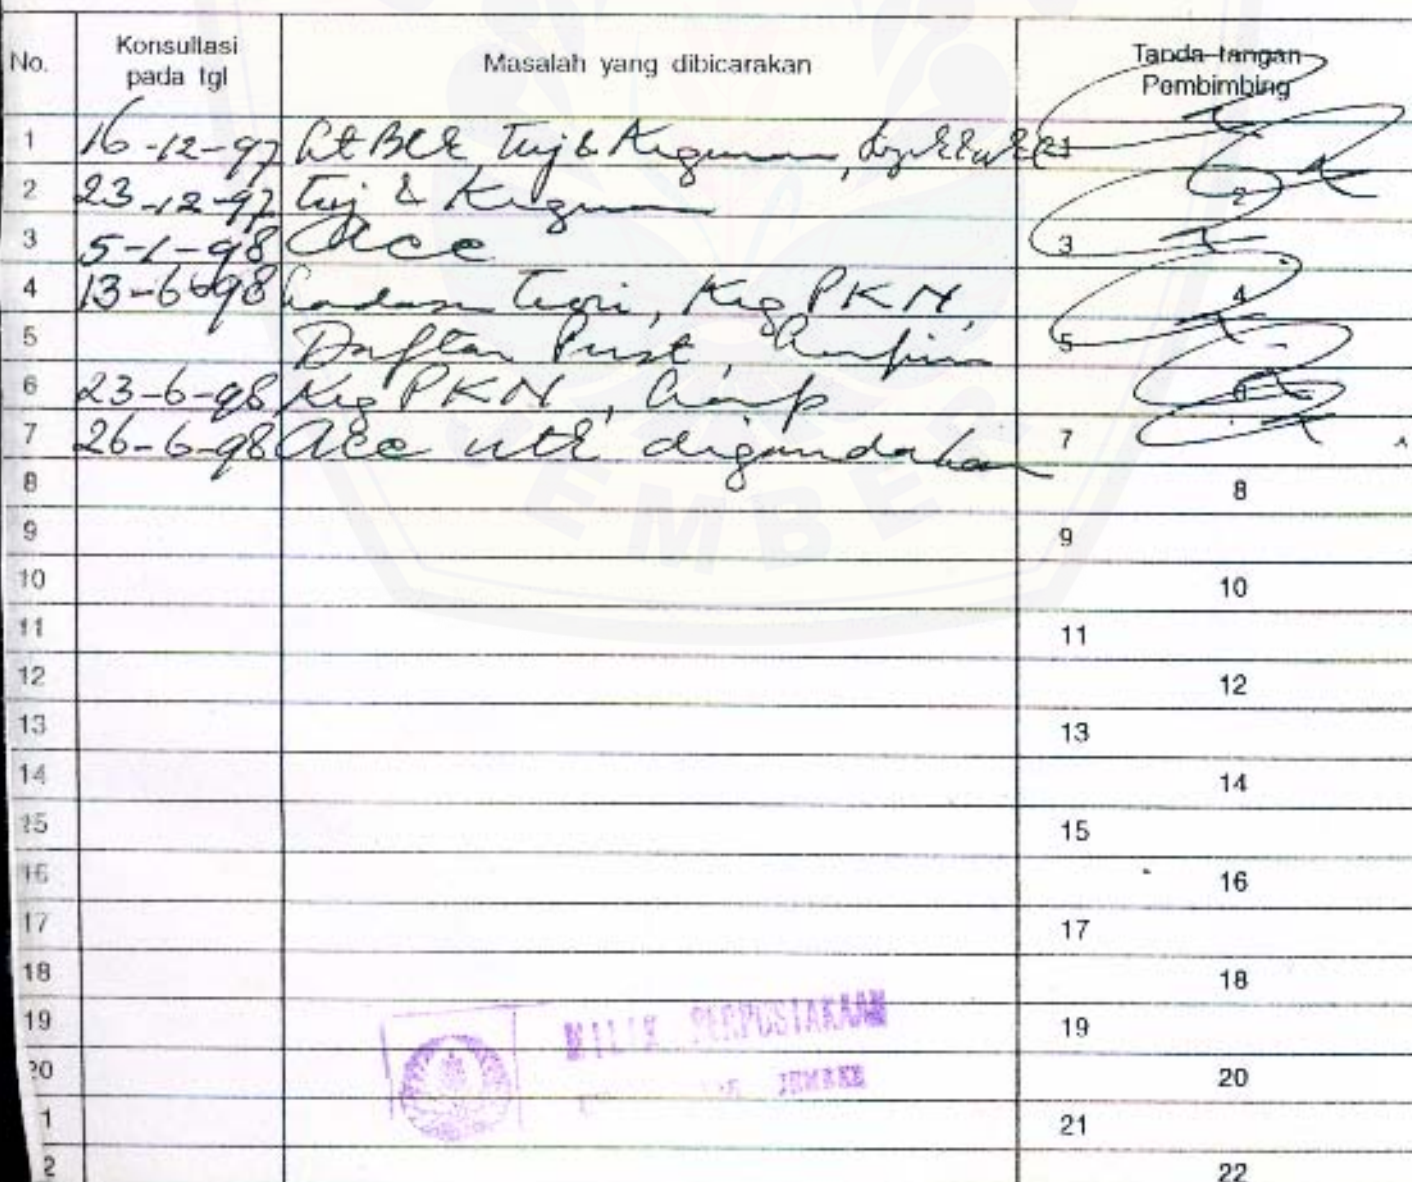 No. Konsultasi pada tgl Masalah yang dibicarakan Tanda tangan Pembimbing
1 16-12-97 Tuj & Kegunaan,
2 23-12-97 Tuj & Kegunaan
3 5-1-98 Acc 3
4 13-6-98 Landasan Teori, Keg PKN, 4
5 Daftar Pust, 5
6 23-6-98 Keg PKN,
7 26-6-98 Acc utk digandakan 7
8 8
9 9
10 10
11 11
12 12
13 13
14 14
15 15
16 16
17 17
18 18
19 MILIK PERPUSTAKAAN 19
20 JEMBER 20
1 21
2 22
EMBE